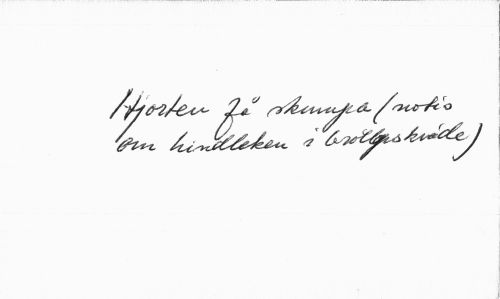 Hjorten få skumpa (notis
om hindleken i bröllopskväde)